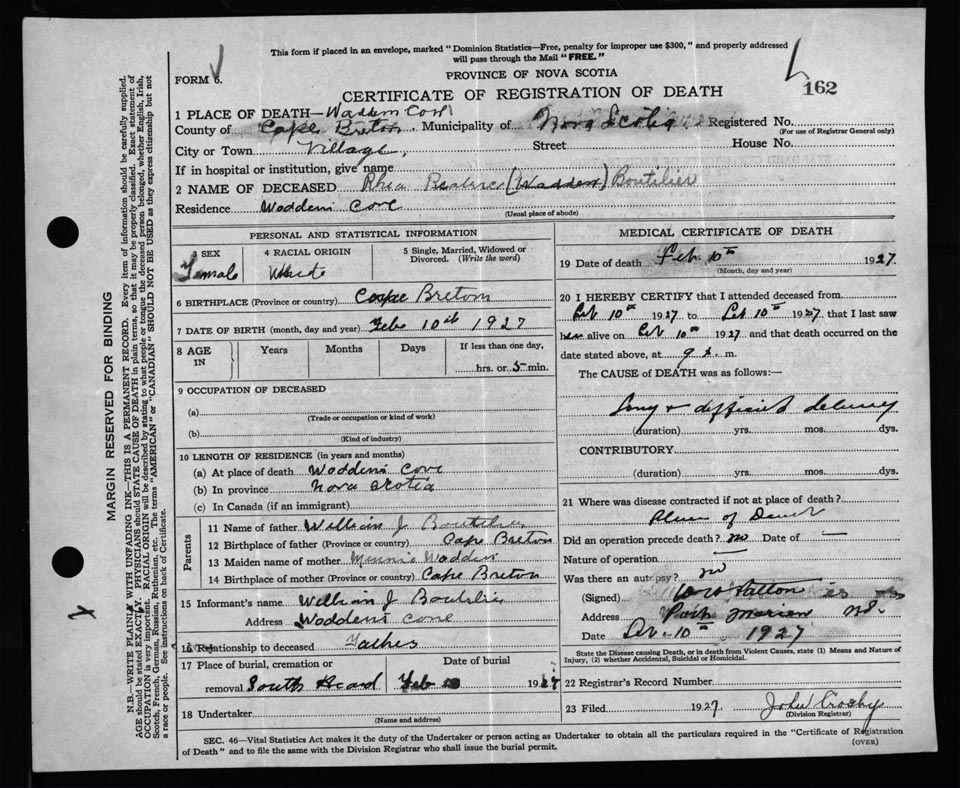 This form if placed in an envelope, marked "Dominion Statistics—Free, penalty for improper use $300," and properly addressed
will pass through the Mail "FREE."
FORM 6.
PROVINCE OF NOVA SCOTIA
162
CERTIFICATE OF REGISTRATION OF DEATH
1 PLACE OF DEATH—Waddens Cove
County of Cape Breton Municipality of Nova Scotia Registered No.
(For use of Registrar General only)
City or Town Village, Street House No.
If in hospital or institution, give name
2 NAME OF DECEASED Rhea Beatrice (Wadden) Boutilier
Residence Waddens Cove
(Usual place of abode)
PERSONAL AND STATISTICAL INFORMATION
3 SEX
Female
4 RACIAL ORIGIN
White
5 Single, Married, Widowed or
Divorced. (Write the word)
6 BIRTHPLACE (Province or country) Cape Breton
7 DATE OF BIRTH (month, day and year) Feb 10th 1927
8 AGE
IN
Years Months Days If less than one day,
hrs. or 5 min.
9 OCCUPATION OF DECEASED
(a)
(Trade or occupation or kind of work)
(b)
(Kind of industry)
10 LENGTH OF RESIDENCE (in years and months)
(a) At place of death Waddens Cove
(b) In province Nova Scotia
(c) In Canada (if an immigrant)
Parents
11 Name of father William J Boutilier
12 Birthplace of father (Province or country) Cape Breton
13 Maiden name of mother Minnie Wadden
14 Birthplace of mother (Province or country) Cape Breton
15 Informant's name William J Boutilier
Address Waddens Cove
16 Relationship to deceased Father
17 Place of burial, cremation or Date of burial
removal South Head Feb 1927
18 Undertaker
(Name and address)
MEDICAL CERTIFICATE OF DEATH
19 Date of death Feb 10th 1927.
(Month, day and year)
20 I HEREBY CERTIFY that I attended deceased from
Feb 10th 1927 to Feb 10th 1927, that I last saw
her alive on Feb 10th 1927 and that death occurred on the
date stated above, at 9 m.
The CAUSE of DEATH was as follows:—
Long & difficult delivery
(duration) yrs. mos. dys.
CONTRIBUTORY
(duration) yrs. mos. dys.
21 Where was disease contracted if not at place of death?
Place of Death
Did an operation precede death? no Date of —
Nature of operation —
Was there an autopsy? no
(Signed) Patton
Address Port Morien N.S.
Date Feb 10th 1927
State the Disease causing Death, or in death from Violent Causes, state (1) Means and Nature of
Injury, (2) whether Accidental, Suicidal or Homicidal.
22 Registrar's Record Number
23 Filed 1927. John Crosby
(Division Registrar)
SEC. 46—Vital Statistics Act makes it the duty of the Undertaker or person acting as Undertaker to obtain all the particulars required in the "Certificate of Registration
of Death" and to file the same with the Division Registrar who shall issue the burial permit.
(OVER)
MARGIN RESERVED FOR BINDING
N.B.—WRITE PLAINLY WITH UNFADING INK—THIS IS A PERMANENT RECORD. Every item of information should be carefully supplied.
AGE should be stated EXACTLY. PHYSICIANS should STATE CAUSE OF DEATH in plain terms, so that it may be properly classified. Exact statement of
OCCUPATION is very important. RACIAL ORIGIN will be described by stating to what people or tongue the deceased person belonged, whether English, Irish,
Scotch, French, German, Russian, Ruthenian, etc. The terms "AMERICAN" or "CANADIAN" SHOULD NOT BE USED as they express citizenship but not
a race or people. See instructions on back of Certificate.